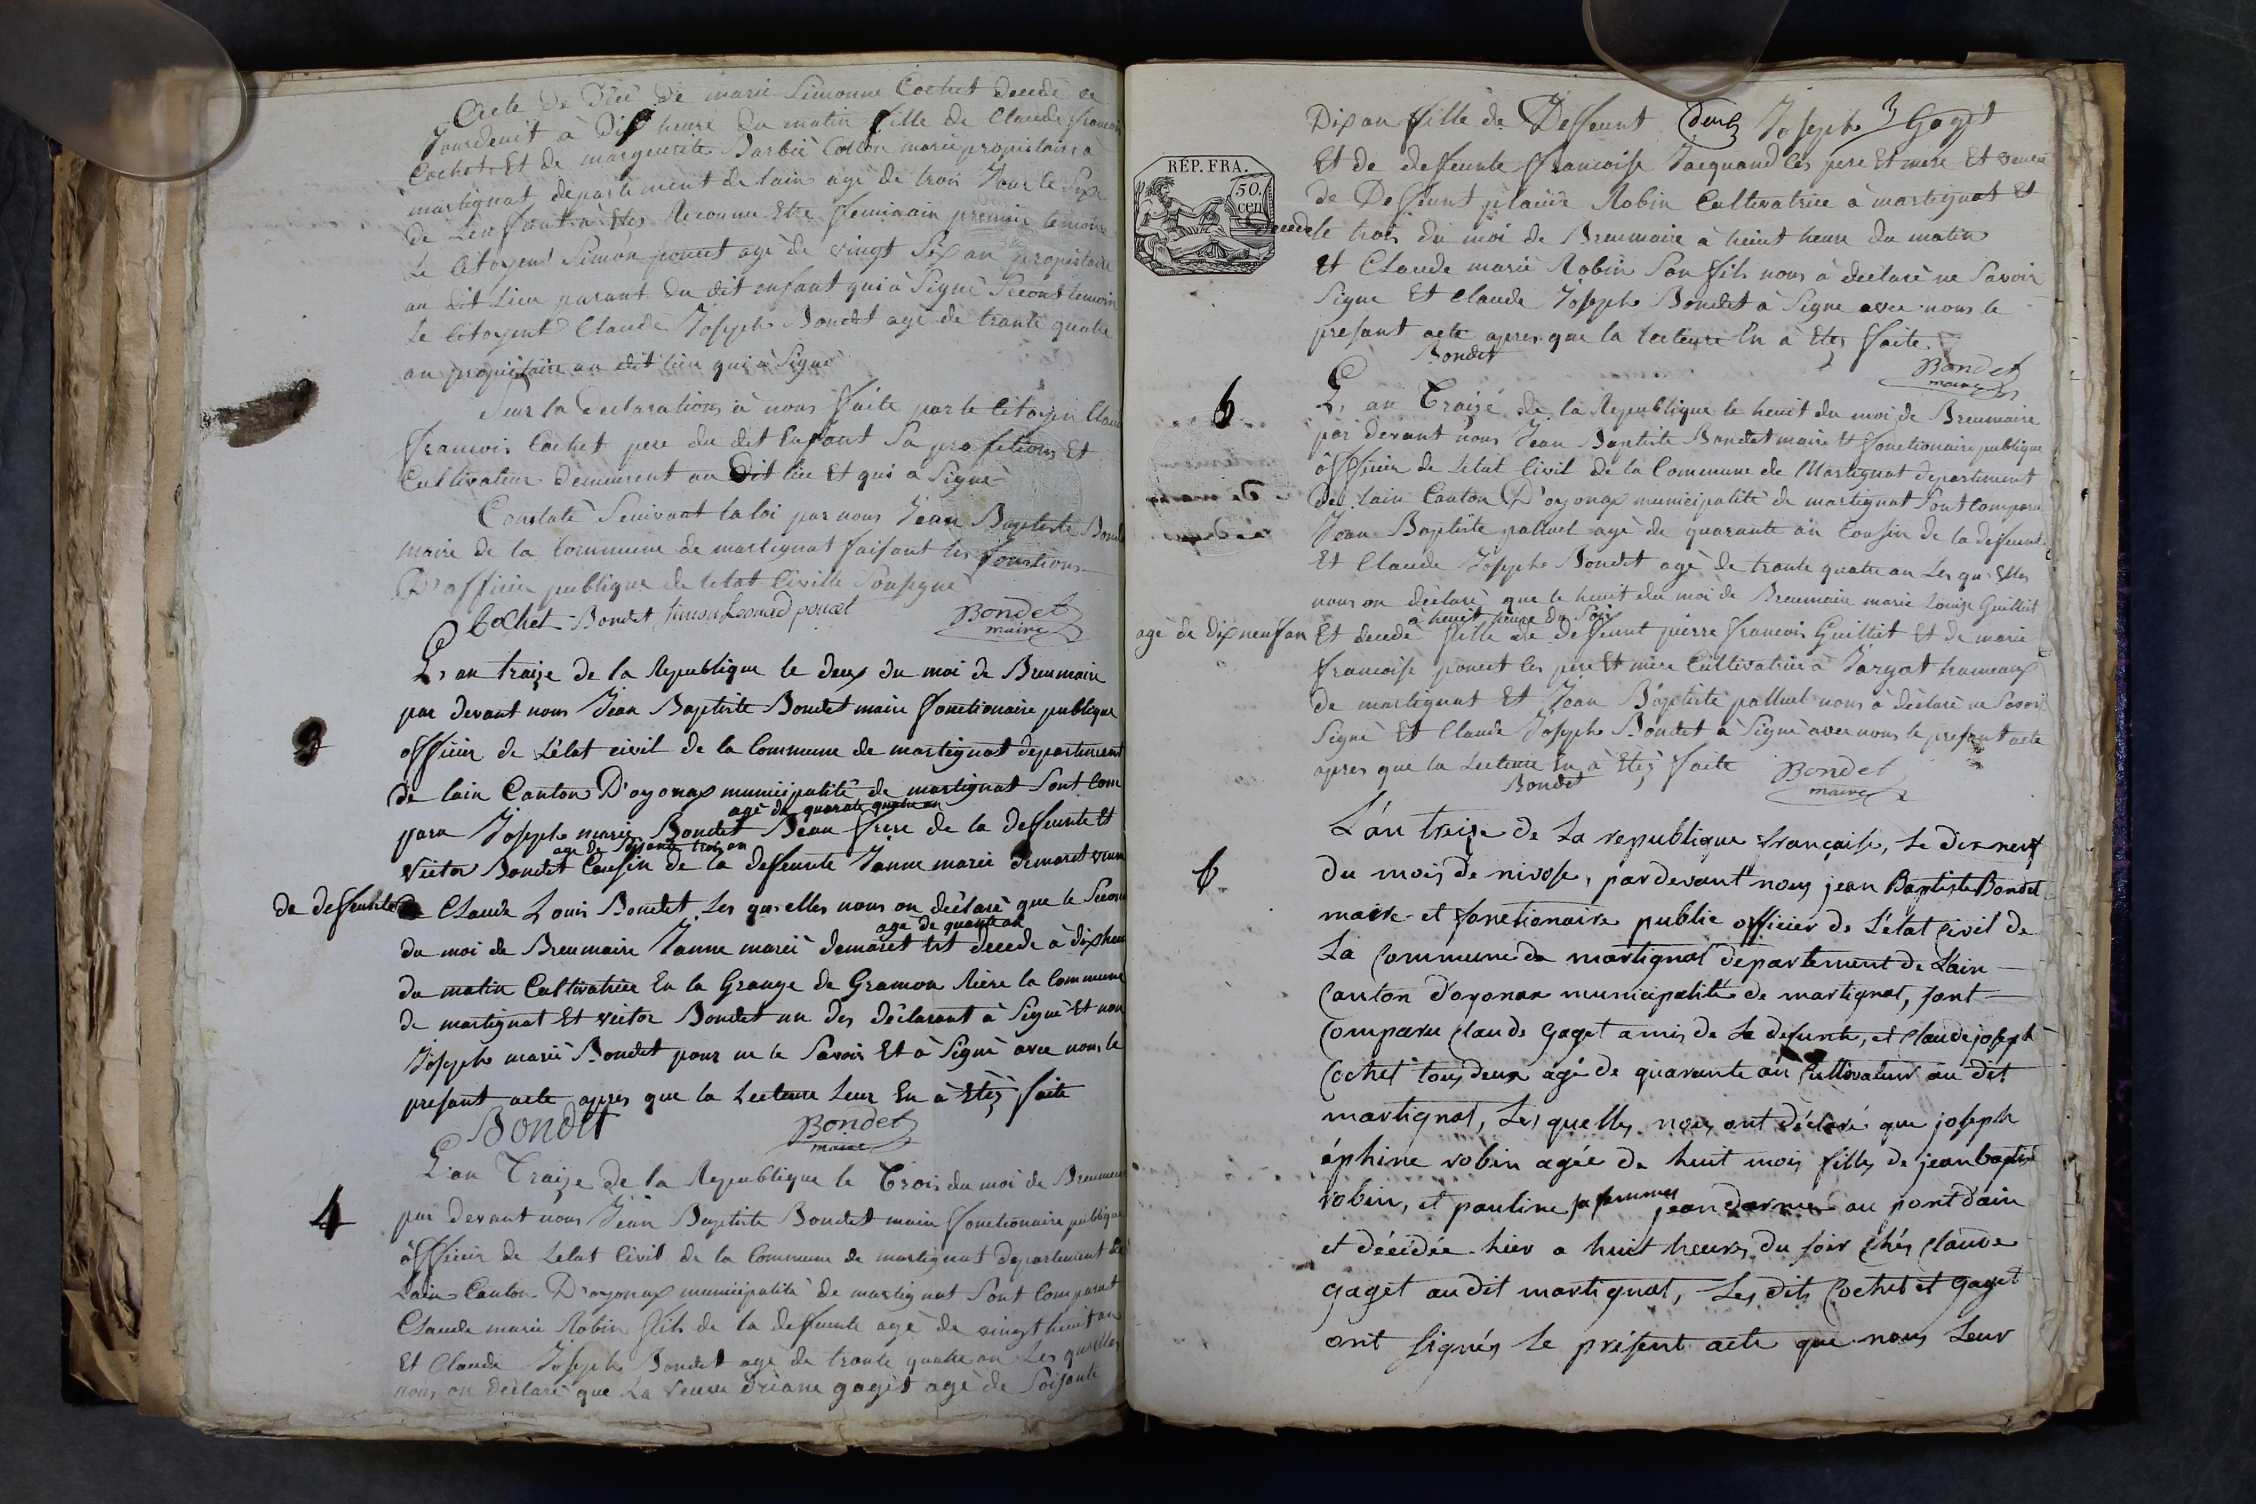 Acte de Décé de marie Simonne Cochet decedé ce
Jourdeuit à Dix heure du matin fille de Claude francois
Cochet Et de margeurite Barbié Collon marié propriétaire à
martignat departement de lain agé de trois Jour le Sexe
de Lenfant à Etes Reconnu Etre feminain premier temoin
Le Citoyent Simon poncet agé de vingt Six an propriétaire
au dit Lieu parant du dit enfant qui à Signé Second temoin
Le Citoyent Claude Joseph Bondet agé de trante quatre
an propriétaire au dit lieu qui à Signé
Seur la declarations à nous faite par le Citoyen Claude
francois Cochet pere du dit Enfant Sa profetions Et
Cultivateur demeurent au Dit lieu Et qui à Signé
Constaté Seuivant la loi par nous Jean Baptiste Bondet
maire de la Commune de martignat faisant les fonctions
D'officier publique de letat Civille Sousigné
Cochet Bondet Simon Leonard poncet Bondet
maire
L'an traize de la Republique le deux du moi de Breumaire
par devant nous Jean Baptiste Bondet maire fonctionaire publique
officier de L'état civil de la Commune de martignat departement
de lain Canton D'oyonax municipalité de martignat Sont Com
agé de quarate quatre an
paru Joseph marie Bondet Beau frere de la deffeunte Et
agé de Soisante trois an
Victor Bondet Cousin de la deffeunte Janne marie demaret veuve
de deffeunte de Claude Louis Bondet Les quselles nous on déclaré que le Second
agé de quarate an
du moi de Breumaire Janne marié demaret Est decede à dix heure
du matin Cultivatrice En la Grange de Gramon Riere la Commune
de martignat Et victor Bondet un des déclarant à Signé Et non
Joseph marié Bondet pour ne le Savoir Et à Signé avec nous le
presant acte apres que la Lecteure Leur En à Etéz faite
Bondet Bondet
maire
L'an Traize de la Republique le Trois du moi de Breumaire
4 par devant nous Jean Baptiste Bondet maire fonctionaire publique
officier de Letat Civil de la Commune de martignat departement de
Lain Canton D'oyonax municipalité de martignat Sont Comparut
Claude marie Robin fils de la deffeunte agé de vingt heuit an
Et Claude Joseph Bondet agé de trante quatre an Les quselles
nous on déclaré que La veuve driane gaget agé de Soisante
Dix an fille de Deffeunt Joseph Gaget
RÉP. FRA.
50.
cen
Et de deffeunte francoise Jacquand les pere Et mere Et veuve
de Deffeunt Robin Cultivatrice à martignat Et
decede le trois du moi de Breumaire à heuit heure du matin
Et Claude marié Robin Son fils nous à déclaré ne Savoir
Signe Et Claude Joseph Bondet à Signe avec nous le
presant acte apres que la Lecteure En à Etez faite
Bondet Bondet
maire
6 L'an Traizé de la Republique le heuit du moi de Breumaire
par devant nous Jean Baptiste Bondet maire Et fonctionaire publique
officier de Letat Civil de la Commune de Martignat departement
de lain Canton D'oyonax municipalité de martignat Sont Comparu
Jean Baptiste pattuel agé de quarante an Cousin de la deffeunte
Et Claude Joseph Bondet agé de trante quatre an Les quselles
nous on déclaré que le heuit du moi de Breumaire marie Louise Guilliet
à heuit heure du Soir
agé de dix neuf an Et decedé fille de deffeunt pierre francois Guilliet Et de marie
francoise poncet les pere Et mere Cultivatrice à Jargat hameaux
de martignat Et Jean Baptiste pattuel nous à déclaré ne Savoir
Signé Et Claude Joseph Bondet à Signé avec nous le presant acte
apres que la Lecteure En à Etéz faite
Bondet Bondet
maire
L'an treize de La republique française, Le dix neuf
6 du mois de nivose, pardevant nous jean Baptiste Bondet
maire et fonctionaire public officier de L'état Civil de
La Commune de martignat departement de L'ain
Canton d'oyonax municipalité de martignat, sont
Comparu Claude Gaget amis de La defunte, et Claude joseph
Cochet tous deux agé de quarante an Cultivateur au dit
martignat, Les quelles nous ont déclaré que joseph
éphine robin agée de huit mois filles de jean baptiste
robin, et pauline sa femmes jeandarmes au pontdain
et décédée hier a huit heures du soir Chés Claude
gaget au dit martignat, Les dits Cochet et gaget
ont signés Le présent acte que nous Leur